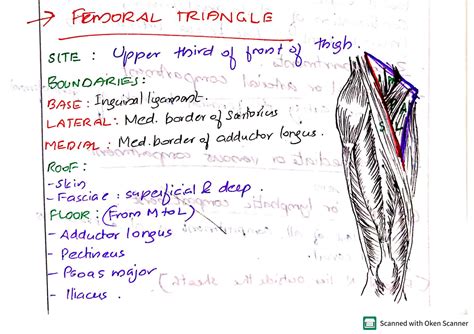 → FEMORAL TRIANGLE
SITE : Upper third of front of thigh.
BOUNDARIES:
BASE: Inguinal ligament.
LATERAL: Med. border of Sartorius
MEDIAL : Med. border of adductor longus.
ROOF:
- Skin
- Fasciae : superficial & deep.
FLOOR : (From M to L)
- Adductor longus
- Pectineus
- Psoas major
- Iliacus.
Scanned with Oken Scanner